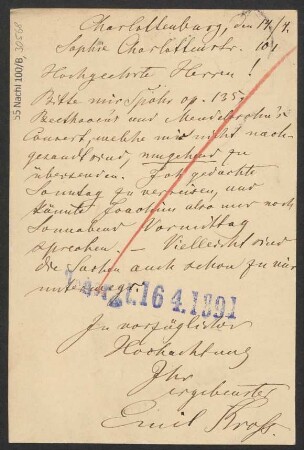 Charlottenburg, den 14/4.
Sophie Charlottenstr. 101
Hochgeehrte Herren!
Bitte mir Spohr op. 135.
Beethovens und Mendelssohn's
Concert, welche mir nicht nach-
gesandt sind, umgehend zu
übersenden. Ich gedachte
Sonntag zu verreisen, und
könnte Joachim also nur noch
Sonnabend Vormittag
sprechen. – Vielleicht sind
die Sachen auch schon zu mir
unterwegs.
16 4.1891
In vorzüglicher
Hochachtung
Ihr
ergebenster
Emil Kross.
55 Nachl 100/B,